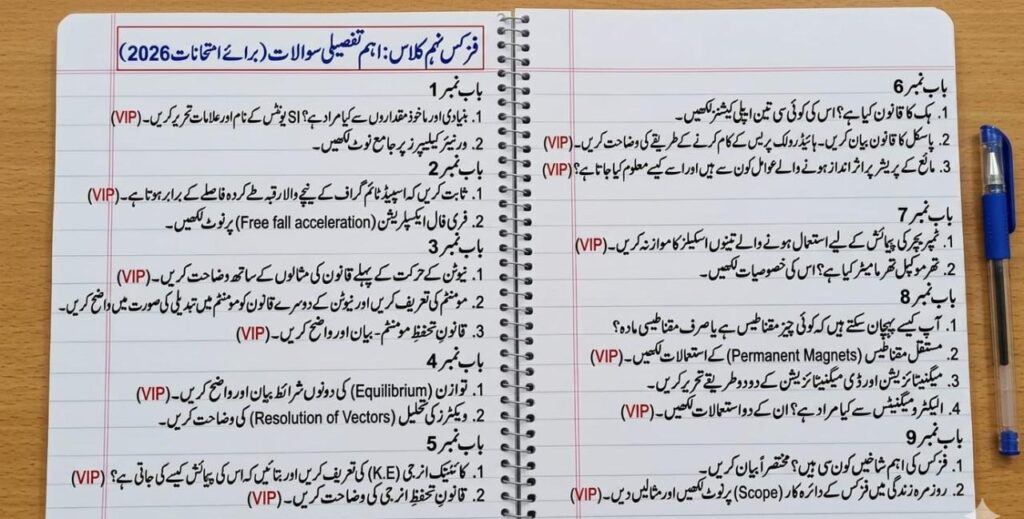 فزکس نہم کلاس: اہم تفصیلی سوالات (برائے امتحانات 2026)
باب نمبر 1
1. بنیادی اور ماخوذ مقداروں سے کیا مراد ہے؟ SI یونٹس کے نام اور علامات تحریر کریں۔ (VIP)
2. ورنیئر کیلیپرز پر جامع نوٹ لکھیں۔
باب نمبر 2
1. ثابت کریں کہ اسپیڈ ٹائم گراف کے نیچے والا رقبہ طے کردہ فاصلے کے برابر ہوتا ہے۔ (VIP)
2. فری فال ایکسلریشن (Free fall acceleration) پر نوٹ لکھیں۔
باب نمبر 3
1. نیوٹن کے حرکت کے پہلے قانون کی مثالوں کے ساتھ وضاحت کریں۔ (VIP)
2. مومنٹم کی تعریف کریں اور نیوٹن کے دوسرے قانون کو مومنٹم میں تبدیلی کی صورت میں واضح کریں۔
3. قانونِ تحفظِ مومنٹم - بیان اور واضح کریں۔ (VIP)
باب نمبر 4
1. توازن (Equilibrium) کی دونوں شرائط بیان اور واضح کریں۔ (VIP)
2. ویکٹرز کی تحلیل (Resolution of Vectors) کی وضاحت کریں۔
باب نمبر 5
1. کائنیٹک انرجی (K.E) کی تعریف کریں اور بتائیں کہ اس کی پیمائش کیسے کی جاتی ہے؟ (VIP)
2. قانونِ تحفظِ انرجی کی وضاحت کریں۔ (VIP)
باب نمبر 6
1. ہک کا قانون کیا ہے؟ اس کی کوئی سی تین اپلی کیشنز لکھیں۔
2. پاسکل کا قانون بیان کریں۔ ہائیڈرولک پریس کے کام کرنے کے طریقے کی وضاحت کریں۔ (VIP)
3. مائع کے پریشر پر اثر انداز ہونے والے عوامل کون سے ہیں اور اسے کیسے معلوم کیا جاتا ہے؟ (VIP)
باب نمبر 7
1. ٹمپریچر کی پیمائش کے لیے استعمال ہونے والے تینوں اسکیلز کا موازنہ کریں۔ (VIP)
2. تھرموکپل تھرمامیٹر کیا ہے؟ اس کی خصوصیات لکھیں۔
باب نمبر 8
1. آپ کیسے پہچان سکتے ہیں کہ کوئی چیز مقناطیس ہے یا صرف مقناطیسی مادہ؟
2. مستقل مقناطیس (Permanent Magnets) کے استعمالات لکھیں۔ (VIP)
3. میگنیٹائزیشن اور ڈی میگنیٹائزیشن کے دو دو طریقے تحریر کریں۔
4. الیکٹرومیگنیٹس سے کیا مراد ہے؟ ان کے دو استعمالات لکھیں۔ (VIP)
باب نمبر 9
1. فزکس کی اہم شاخیں کون سی ہیں؟ مختصراً بیان کریں۔
2. روزمرہ زندگی میں فزکس کے دائرہ کار (Scope) پر نوٹ لکھیں اور مثالیں دیں۔ (VIP)